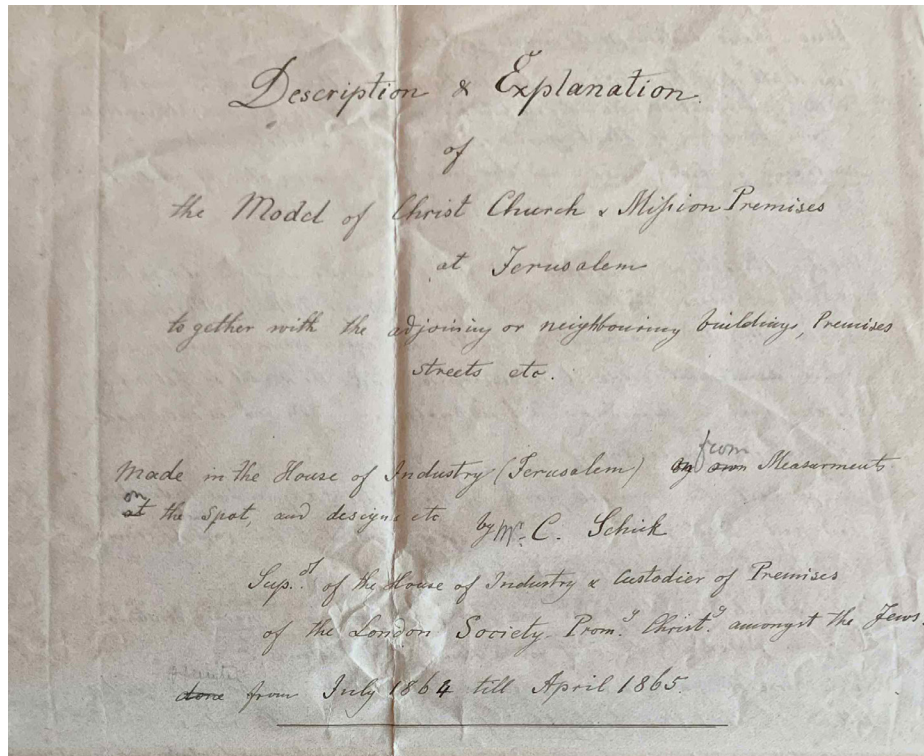 Description & Explanation.
of
the Model of Christ Church & Mission Premises
at Jerusalem
together with the adjoining or neighbouring buildings, Premises
streets etc.
Made in the House of Industry (Jerusalem) by own from Measurments
at on the Spot, and designs etc by Mr. C. Schick
Sup.dt of the House of Industry & Custodier of Premises
of the London Society Prom.g Christ.y amongst the Jews.
done from July 1864 till April 1865.